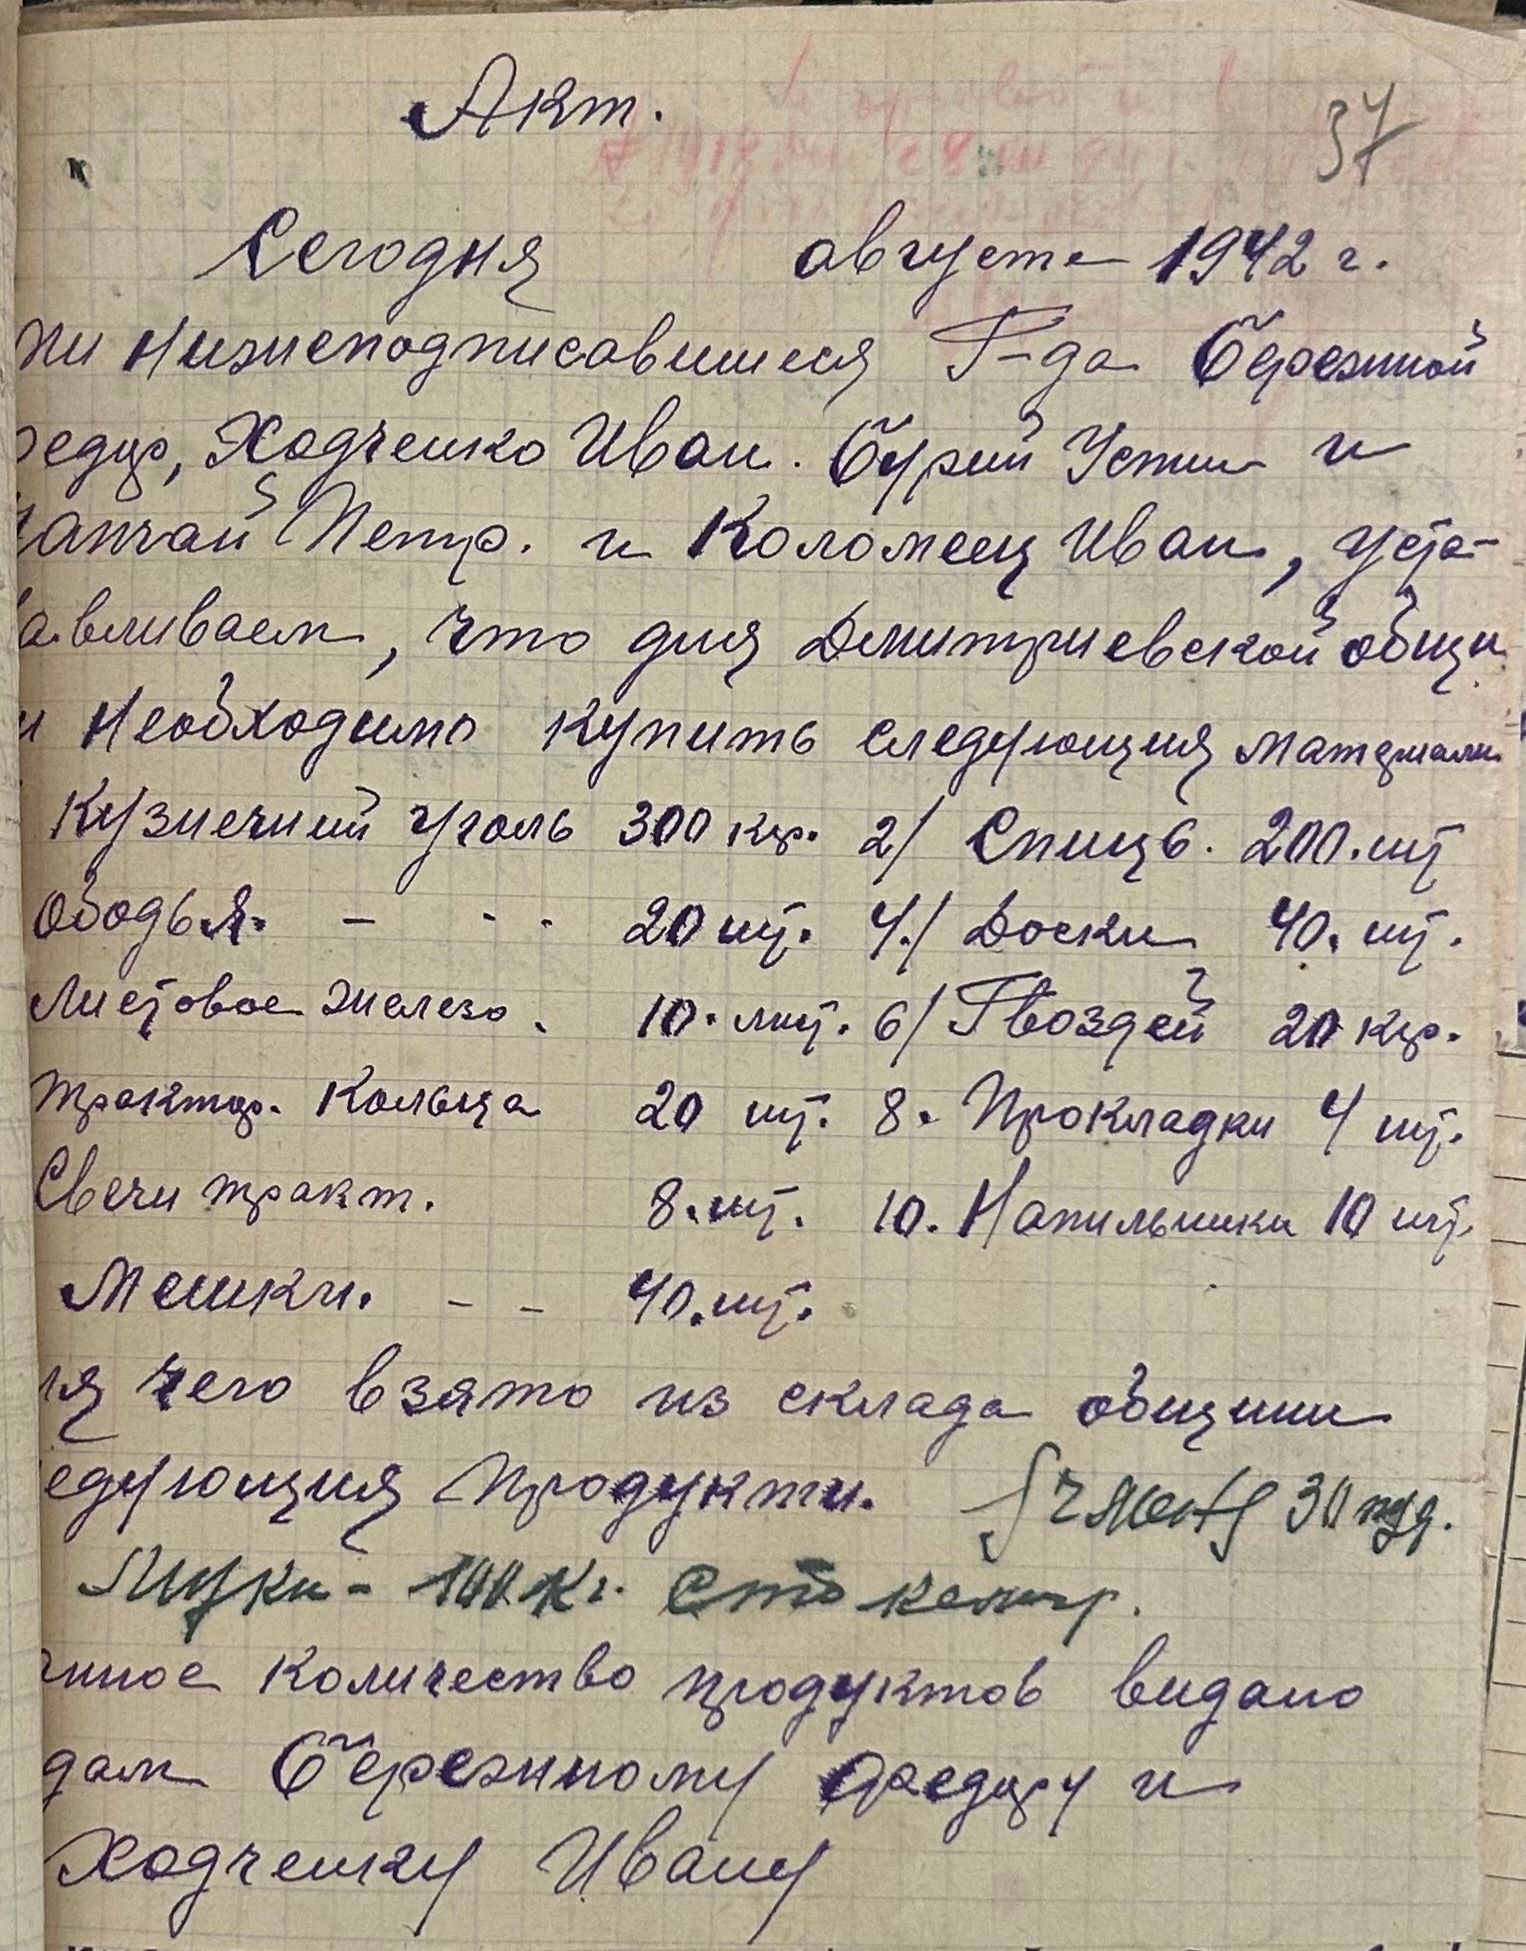 Акт.
37
Сегодня августа 1942 г.
ми нижеподписавшиеся Г-да Бережной
едир, Ходченко Иван. Бурий Устин и
апчай Петр. и Коломеец Иван, уста-
авливаем, что для Дмитриевской общи
и необходимо купить следующия материали
Кузнечний уголь 300 кгр. 2/ Спицъ. 200. шт
Ободья. - - - 20 шт. 4./ Доски 40. шт.
Листовое железо. 10. лист. 6/ Гвоздей 20 кгр.
трактор. Кольца 20 шт. 8. Прокладки 4 шт.
Свечи тракт. 8. шт. 10. Напильники 10 шт.
Мешки. - - 40. шт.
ля чего взято из склада общини
едующия продукти. Ячменя 30 пуд.
Муки - 100 кг. сто килогр.
нное количество продуктов видано
дам Бережному Федиру и
Ходченку Ивану